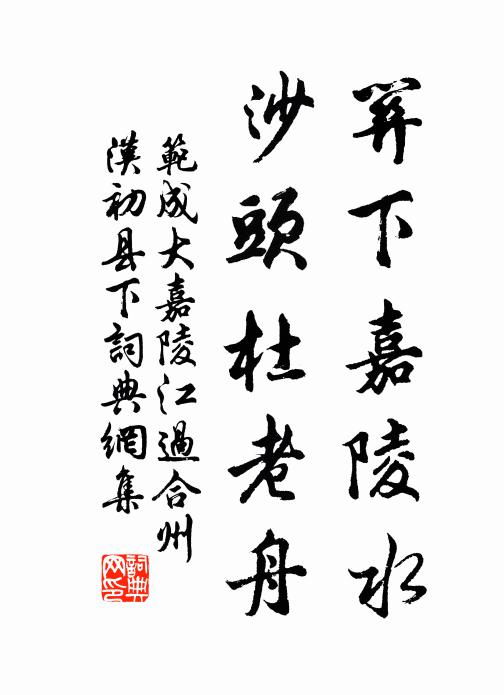 關下嘉陵水
沙頭杜老舟
範成大嘉陵江過合州
漢初县下詞典網集
詞典
网印